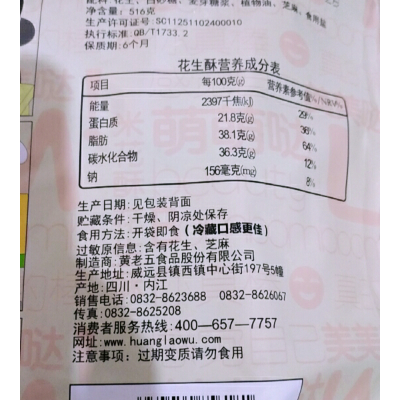 配料 花生、白砂糖、麦芽糖浆、植物油、芝麻、食用盐
净含量：516克
生产许可证号：SC11251102400010
执行标准：QB/T1733.2
保质期：6个月
花生酥营养成分表
项目 每100克(g) 营养素参考值%/NRV%
能量 2397千焦(kJ) 29%
蛋白质 21.8克(g) 36%
脂肪 38.1克(g) 64%
碳水化合物 36.3克(g) 12%
钠 156毫克(mg) 8%
生产日期：见包装背面
贮藏条件：干燥、阴凉处保存
食用方法：开袋即食（冷藏口感更佳）
过敏原信息：含有花生、芝麻
制造商：黄老五食品股份有限公司
生产地址：威远县镇西镇中心街197号5幢
产地：四川·内江
销售电话：0832-8623688 0832-8626067
传真：0832-8625208
消费者服务热线：400—657—7757
网址：www.huanglaowu.com
注意事项：过期变质请勿食用